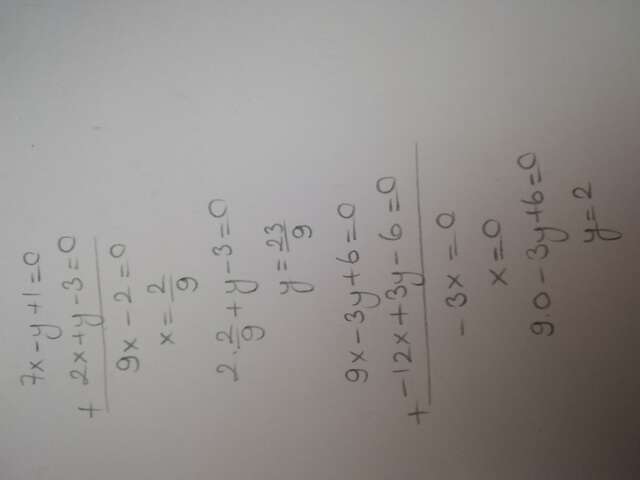 7x-y+1=0
+ 2x+y-3=0
9x-2=0
x=2/9
2·2/9+y-3=0
y=23/9
9x-3y+6=0
+ -12x+3y-6=0
-3x=0
x=0
9·0-3y+6=0
y=2